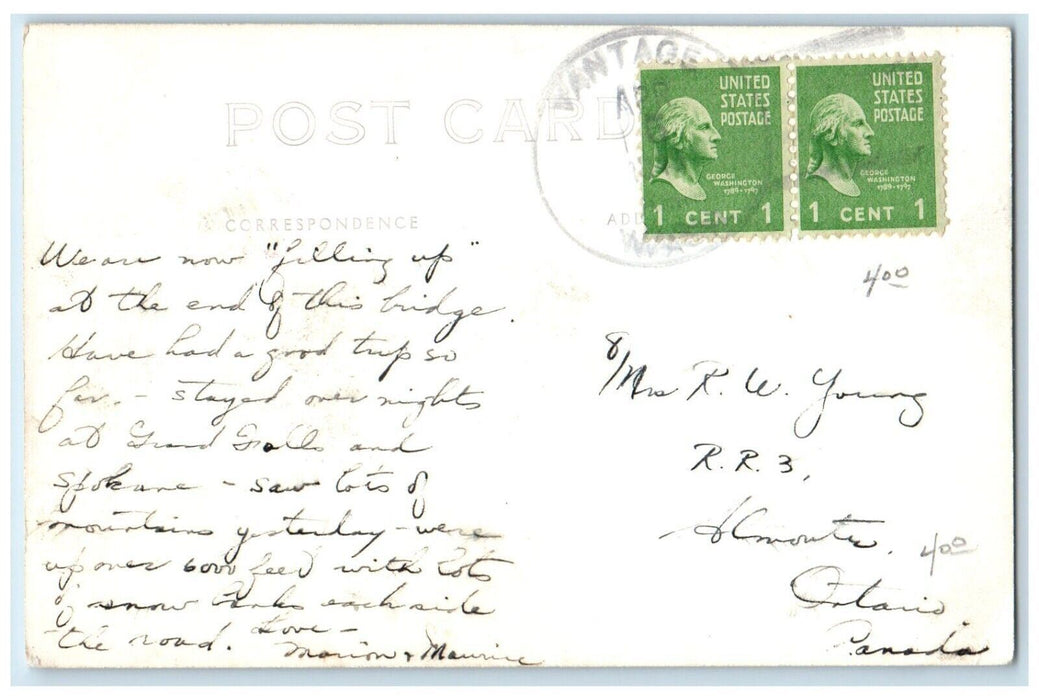 POST CARD
VANTAGE
APR
UNITED
STATES
POSTAGE
GEORGE
WASHINGTON
1789-1797
1 CENT 1
UNITED
STATES
POSTAGE
GEORGE
WASHINGTON
1789-1797
1 CENT 1
CORRESPONDENCE
ADD
We are now "filling up"
at the end of this bridge.
Have had a good trip so
far. - stayed over nights
at Falls and
Spokane - saw lots of
mountains yesterday - were
up over 6000 feed with lots
of snow banks each side
the road. Love -
Marion & Maurice
400
Mrs R. W. Young
R.R. 3,
Almonte,
400
Ontario
Canada